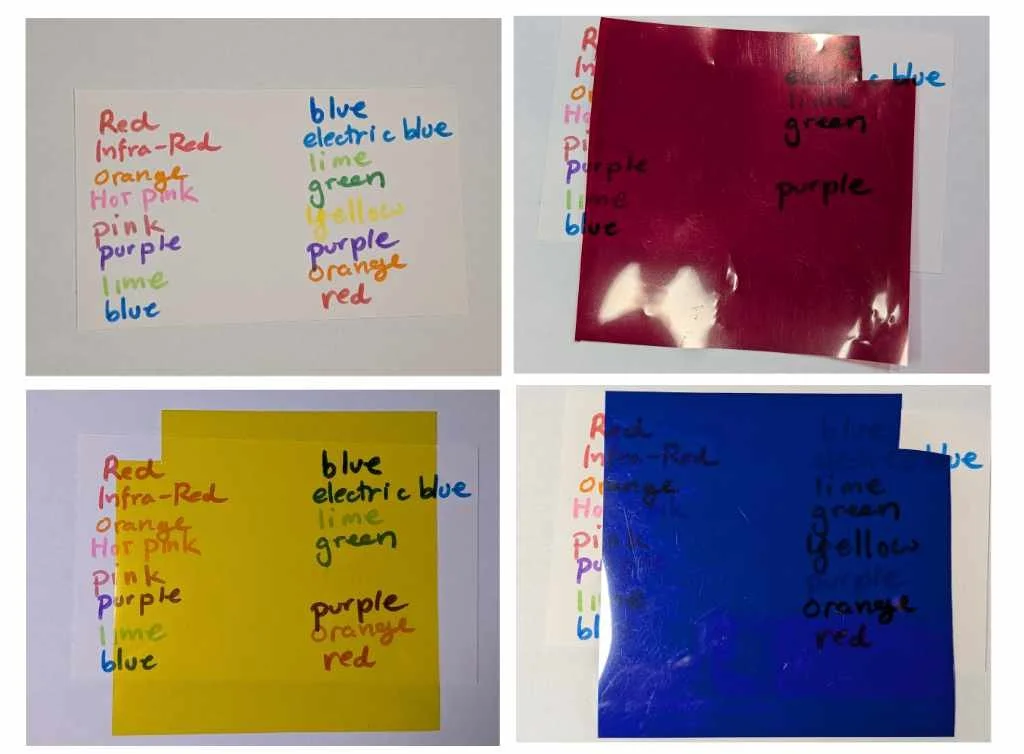 Red
Infra-Red
orange
Hot pink
pink
purple
lime
blue
blue
electric blue
lime
green
yellow
purple
orange
red
R
In
or
Ho
pi
purple
lime
blue
electric blue
lime
green
purple
Red
Infra-Red
orange
Hot pink
pink
purple
lime
blue
blue
electric blue
lime
green
purple
orange
red
Red
Infra-Red
orange
Ho
pink
pu
lime
bl
blue
electric blue
lime
green
yellow
purple
orange
red